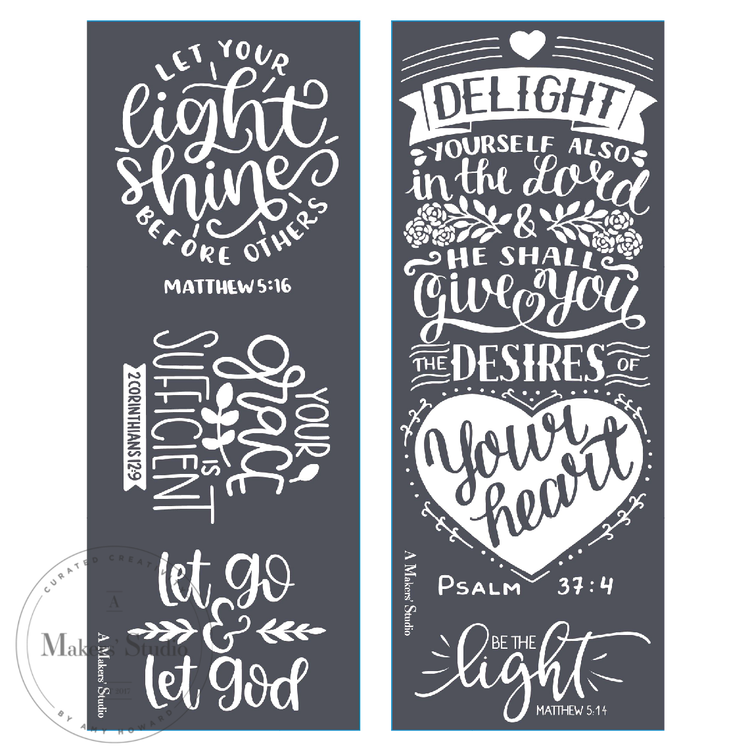 LET YOUR
light
shine
BEFORE OTHERS
MATTHEW 5:16
YOUR
grace
IS
SUFFICIENT
2 CORINTHIANS 12:9
let go
&
let god
A Makers' Studio
CURATED CREATIVE
A
Makers' Studio
2017
BY AMY HOWARD
DELIGHT
YOURSELF ALSO
in the Lord
&
HE SHALL
Give You
THE DESIRES OF
Your
heart
PSALM 37:4
A Makers' Studio
BE THE
light
MATTHEW 5:14